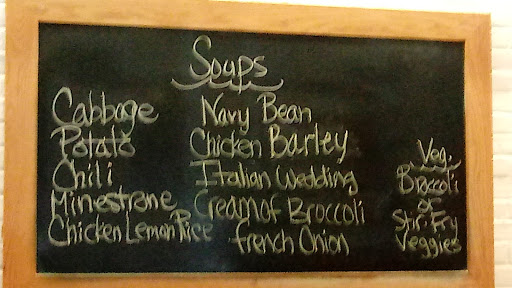 Soups
Cabbage
Potato
Chili
Minestrone
Chicken Lemon Rice
Navy Bean
Chicken Barley
Italian Wedding
Cream of Broccoli
French Onion
Veg.
Broccoli
or
Stir-Fry
Veggies